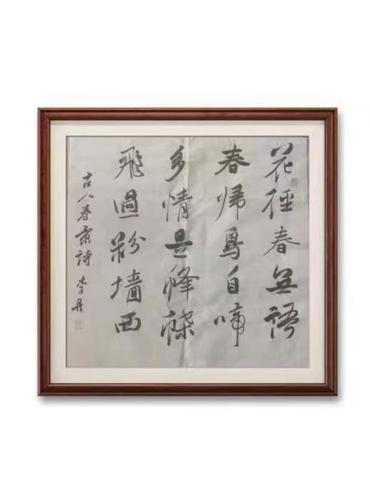 花徑春無語
春歸鳥自啼
多情是蜂蝶
飛過粉墙西
古人春詩 李丹